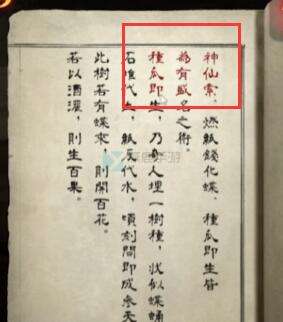 神仙索，燃紙錢化蝶，種瓜即生皆
為有盛名之術。
種瓜即生，乃命人埋一樹種，狀似蝶蛹
石堆代土，紙灰代水，頃刻間即成參天
此樹若有蝶來，則開百花。
若以酒灌，則生百果。